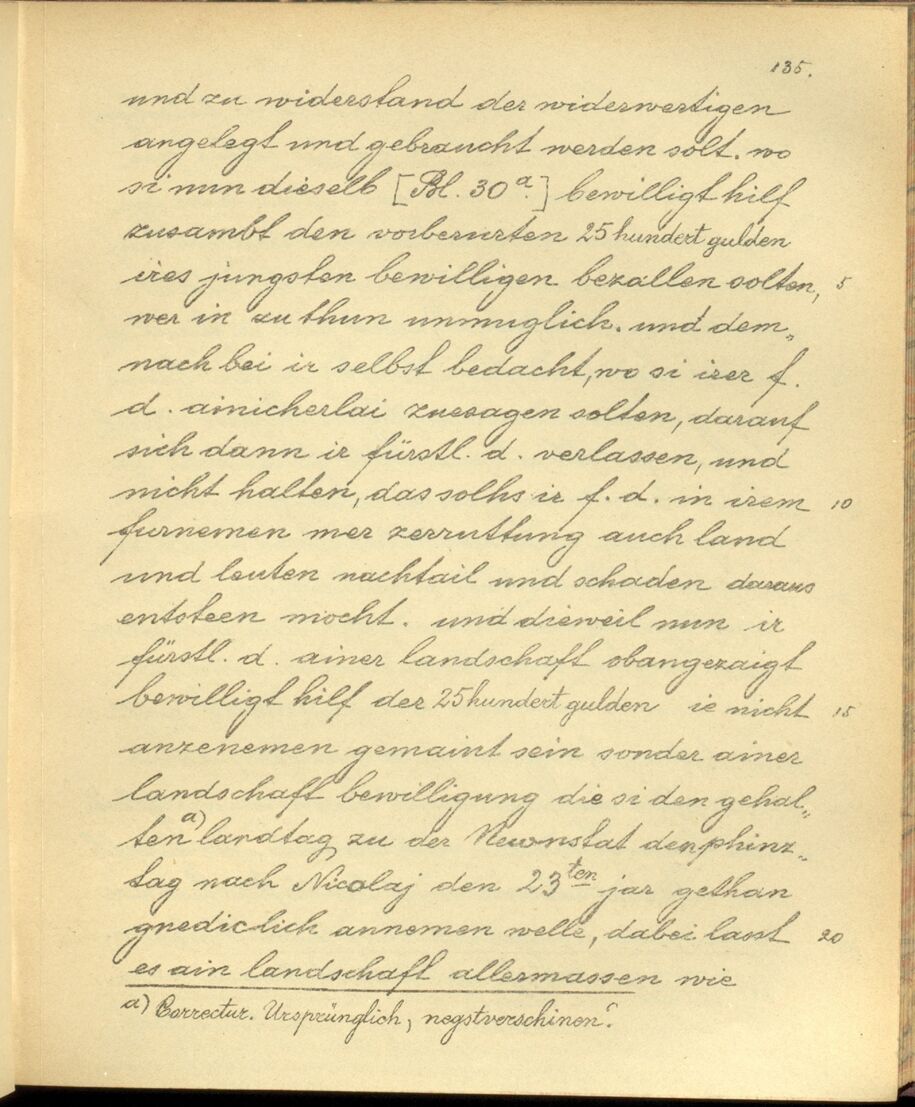 135.
und zu widerstand der widerwertigen
angelegt und gebraucht werden solt. wo
si nun dieselb [Bl. 30ª.] bewilligt hilf
zusambt den vorberurten 25 hundert gulden
ires jungsten bewilligen bezallen solten, 5
wer in zu thun unmuglich. und dem„
nach bei ir selbst bedacht, wo si irer f.
d. ainicherlai zuesagen solten, darauf
sich dann ir fürstl. d. verlassen, und
nicht halten, das solhs ir f. d. in irem 10
furnemen mer zerruttung auch land
und leuten nachtail und schaden daraus
entsteen mocht. und dieweil nun ir
fürstl. d. ainer landschaft obangezaigt
bewilligt hilf der 25 hundert gulden ie nicht 15
anzenemen gemaint sein sonder ainer
landschaft bewilligung die si den gehal„
ten a) landtag zu der Newnstat den phinz„
tag nach Nicolaj den 23ten jar gethan
gnediclich annemen welle, dabei lasst 20
es ain landschaft allermassen wie
a) Correctur. Ursprünglich, negstverschinen‘.